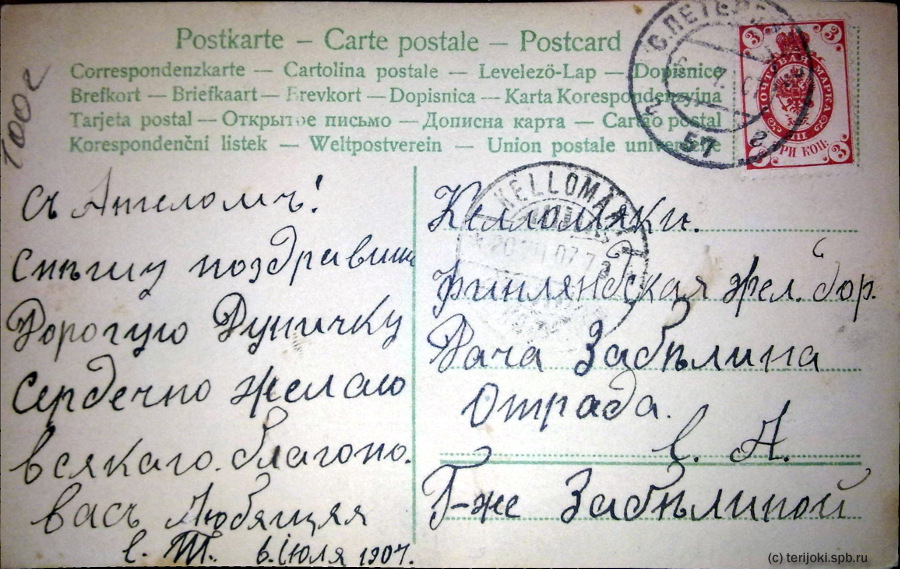 Postkarte – Carte postale – Postcard
Correspondenzkarte — Cartolina postale — Levelező-Lap — Dopisnice
Brefkort — Briefkaart — Brevkort — Dopisnica — Karta Korespondencyjna
Tarjeta postal — Открытое письмо — Дописна карта — Cartão postal
Korespondenční listek — Weltpostverein — Union postale universelle
С.ПЕТЕР
57
2
3 3
ПОЧТОВАЯ МАРКА
ТРИ КОП.
3 3
Съ Ангеломъ!
спѣшу поздравить
Дорогую Дуничку
Сердечно желаю
всякаго. благопо.
васъ Любящая
С. Т. 6. Іюля 1907.
KELLOMÄKI
07.7
Келломяки.
Финляндская жел. дор.
Дача Забѣлина
Отрада.
С. А.
Г-же Забѣлиной
(c) terijoki.spb.ru